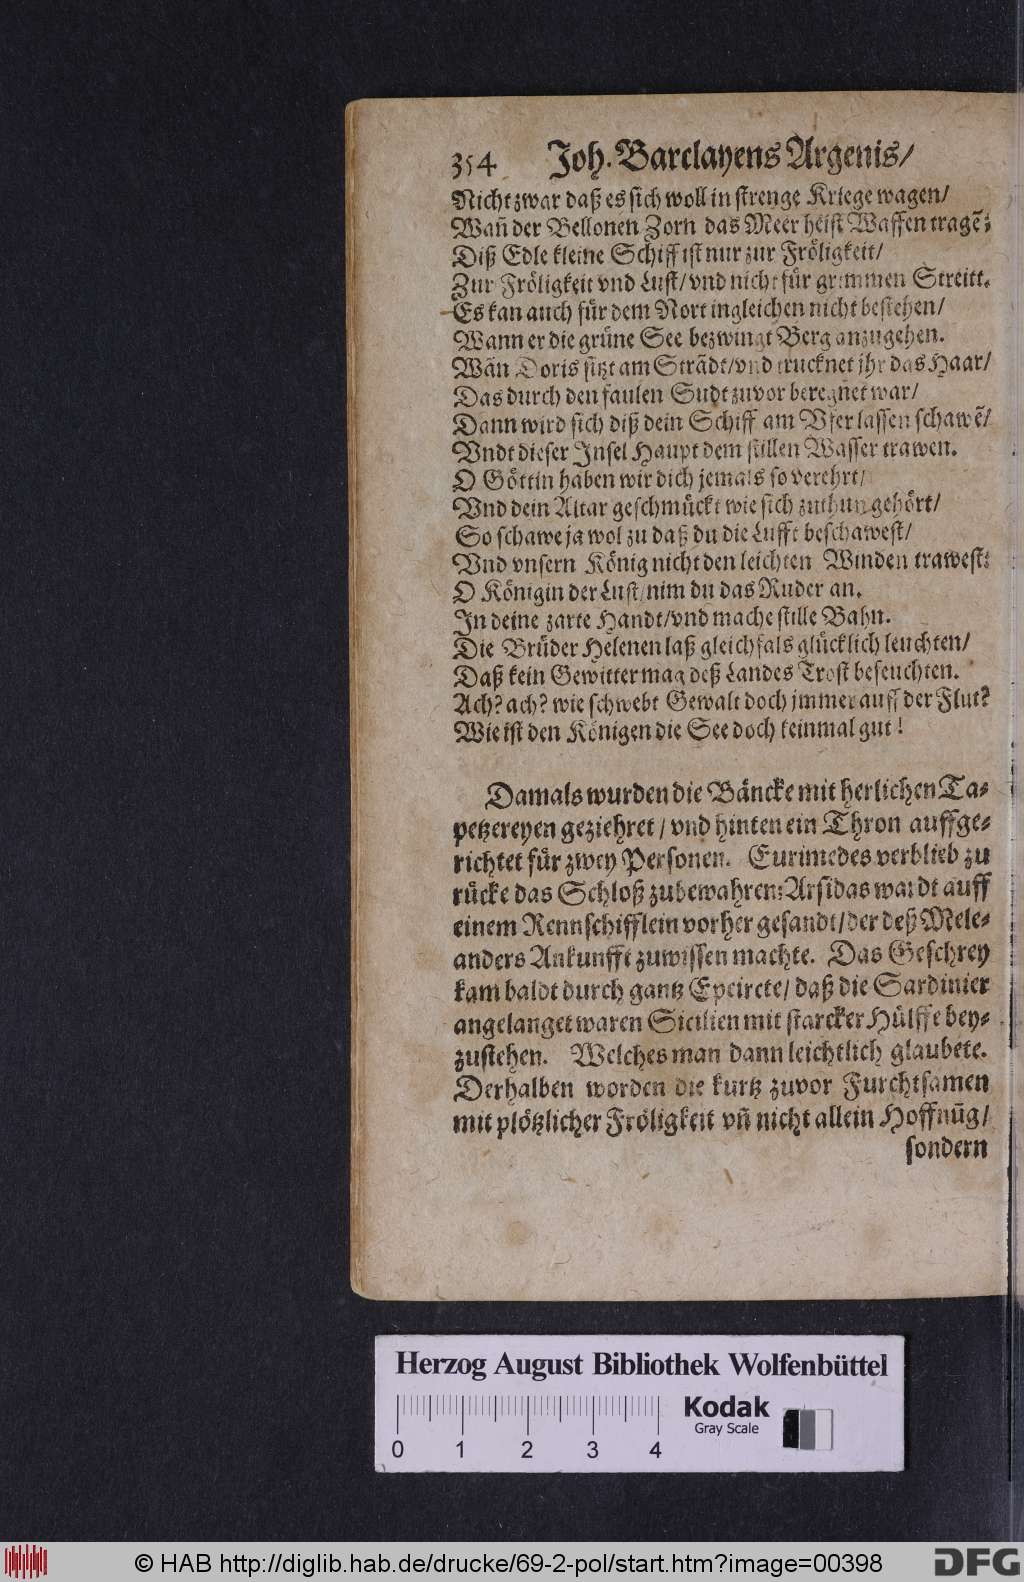 354 Joh. Barclayens Argenis/
Nicht zwar daß es sich woll in strenge Kriege wagen/
Wañ der Bellonen Zorn das Meer heist Waffen tragẽ:
Diß Edle kleine Schiff ist nur zur Fröligkeit/
Zur Fröligkeit vnd Lust/vnd nicht für grimmen Streitt.
Es kan auch für dem Nort ingleichen nicht bestehen/
Wann er die grüne See bezwingt Berg anzugehen.
Wãn Doris sitzt am Strãdt/vnd trucknet jhr das Haar/
Das durch den faulen Sudt zuvor beregnet war/
Dann wird sich diß dein Schiff am Vfer lassen schawẽ/
Vndt dieser Insel Haupt dem stillen Wasser trawen.
O Göttin haben wir dich jemals so verehrt/
Vnd dein Altar geschmückt wie sich zuthun gehört/
So schawe ja wol zu daß du die Lufft beschawest/
Vnd vnsern König nicht den leichten Winden trawest:
O Königin der Lust/nim du das Ruder an.
In deine zarte Handt/vnd mache stille Bahn.
Die Brüder Helenen laß gleichfals glücklich leuchten/
Daß kein Gewitter mag deß Landes Trost befeuchten.
Ach? ach? wie schwebt Gewalt doch jmmer auff der Flut?
Wie ist den Königen die See doch keinmal gut!
Damals wurden die Bäncke mit herlichen Ta-
petzereyen geziehret / vnd hinten ein Thron auffge-
richtet für zwey Personen. Eurimedes verblieb zu
rücke das Schloß zubewahren: Arsidas wardt auff
einem Rennschifflein vorher gesandt/der deß Mele-
anders Ankunfft zuwissen machte. Das Geschrey
kam baldt durch gantz Epeircte/ daß die Sardinier
angelanget waren Sicilien mit starcker Hülffe bey-
zustehen. Welches man dann leichtlich glaubete.
Derhalben worden die kurtz zuvor Furchtsamen
mit plötzlicher Fröligkeit vñ nicht allein Hoffnũg/
sondern
Herzog August Bibliothek Wolfenbüttel
Kodak
Gray Scale
0 1 2 3 4
© HAB http://diglib.hab.de/drucke/69-2-pol/start.htm?image=00398
DFG